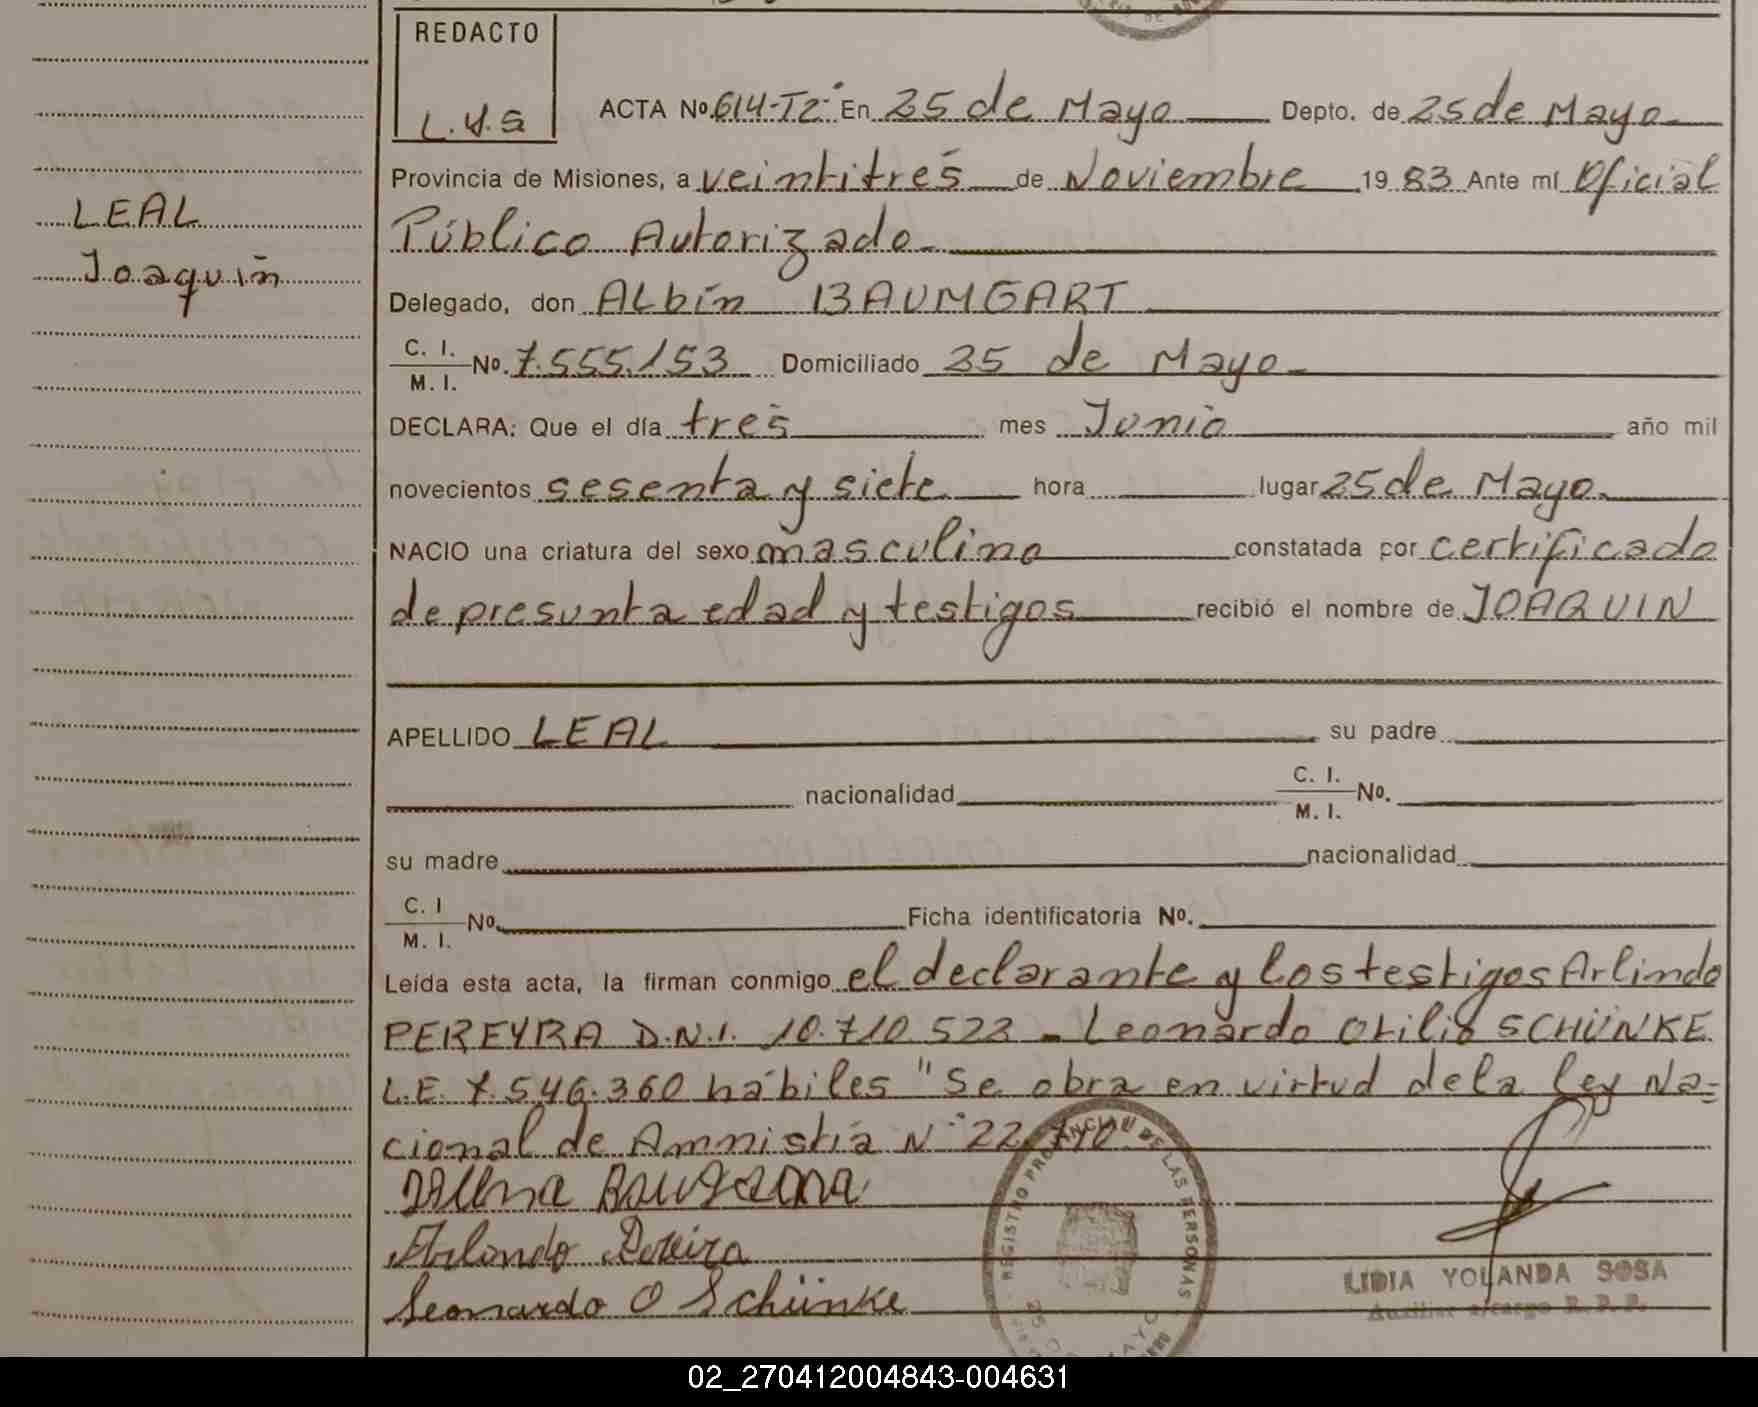 REDACTO
L.Y.S
ACTA Nº 614-Tº2º En 25 de Mayo Depto. de 25 de Mayo
Provincia de Misiones, a veintitrés de Noviembre 19 83 Ante mí Oficial
Público Autorizado
LEAL
Joaquín
Delegado, don ALbín BAUMGART
C. I. M. I. No. 7.555.153 Domiciliado 25 de Mayo
DECLARA: Que el día tres mes Junio año mil
novecientos sesenta y siete hora lugar 25 de Mayo
NACIO una criatura del sexo masculino constatada por certificado
de presunta edad y testigos recibió el nombre de JOAQUIN
APELLIDO LEAL su padre
nacionalidad C. I. M. I. No.
su madre nacionalidad
C. I M. I. No. Ficha identificatoria Nº.
Leída esta acta, la firman conmigo el declarante y los testigos Arlindo
PEREYRA D.N.I. 10.710.523 - Leonardo Otilio SCHÜNKE
L.E. 7.546.360 hábiles "Se obra en virtud de la Ley Na=
cional de Amnistía Nº 22
Arlindo Pereira
Leonardo O Schünke
REGISTRO PROVINCIAL DE LAS PERSONAS
LIDIA YOLANDA SOSA
Auxiliar a/cargo R. P. P.
02_270412004843-004631